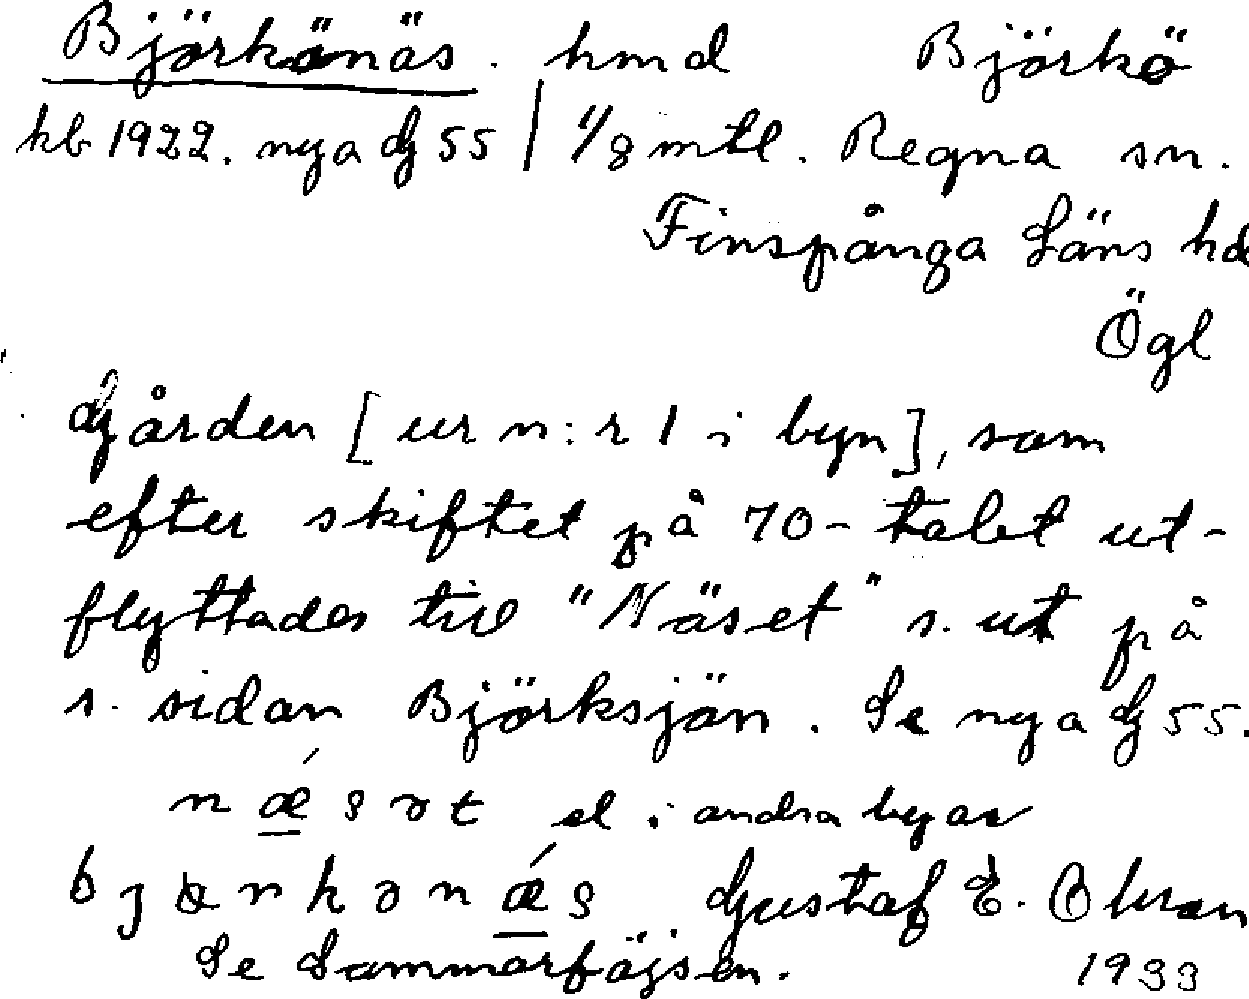 Björkönäs. hmd Björkö
kb 1922. nya G 55 | 1/8 mtl. Regna sn.
Finspånga Läns hd
Ögl
Gården [ur n:r 1 i byn], som
efter skiftet på 70-talet ut-
flyttades till "Näset" s. ut på
s. sidan Björksjön. Se nya G 55.
nǽsət el. i andra byar
björkənǽs Gustaf E. Ohrn
Se Sammanföjsen.
1933